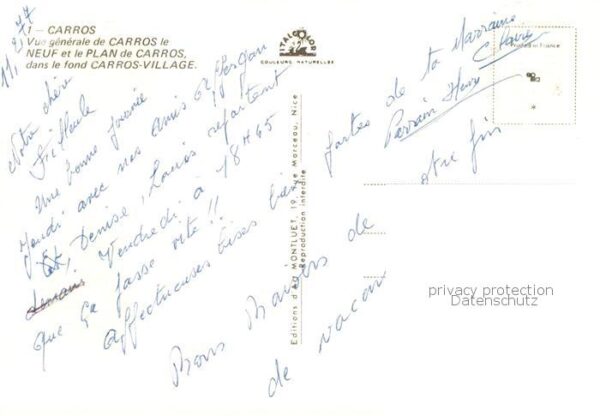 1 - CARROS
Vue générale de CARROS le
NEUF et le PLAN de CARROS,
dans le fond CARROS-VILLAGE.
ITALCOLOR
COULEURS NATURELLES
Printed in France
Editions d'Art MONTLUET, 19, rue Marceau, Nice
Reproduction interdite
11.8.77
Notre chère
Filleule
Une bonne journée
Jeudi avec nos amis
Denise, Louis repartent
Vendredi à 18H45
que ça passe vite !!
affectueuses bises bien
fortes de ta Marraine
Parrain
Bons Baisers de
votre fin
de vacances
privacy protection
Datenschutz